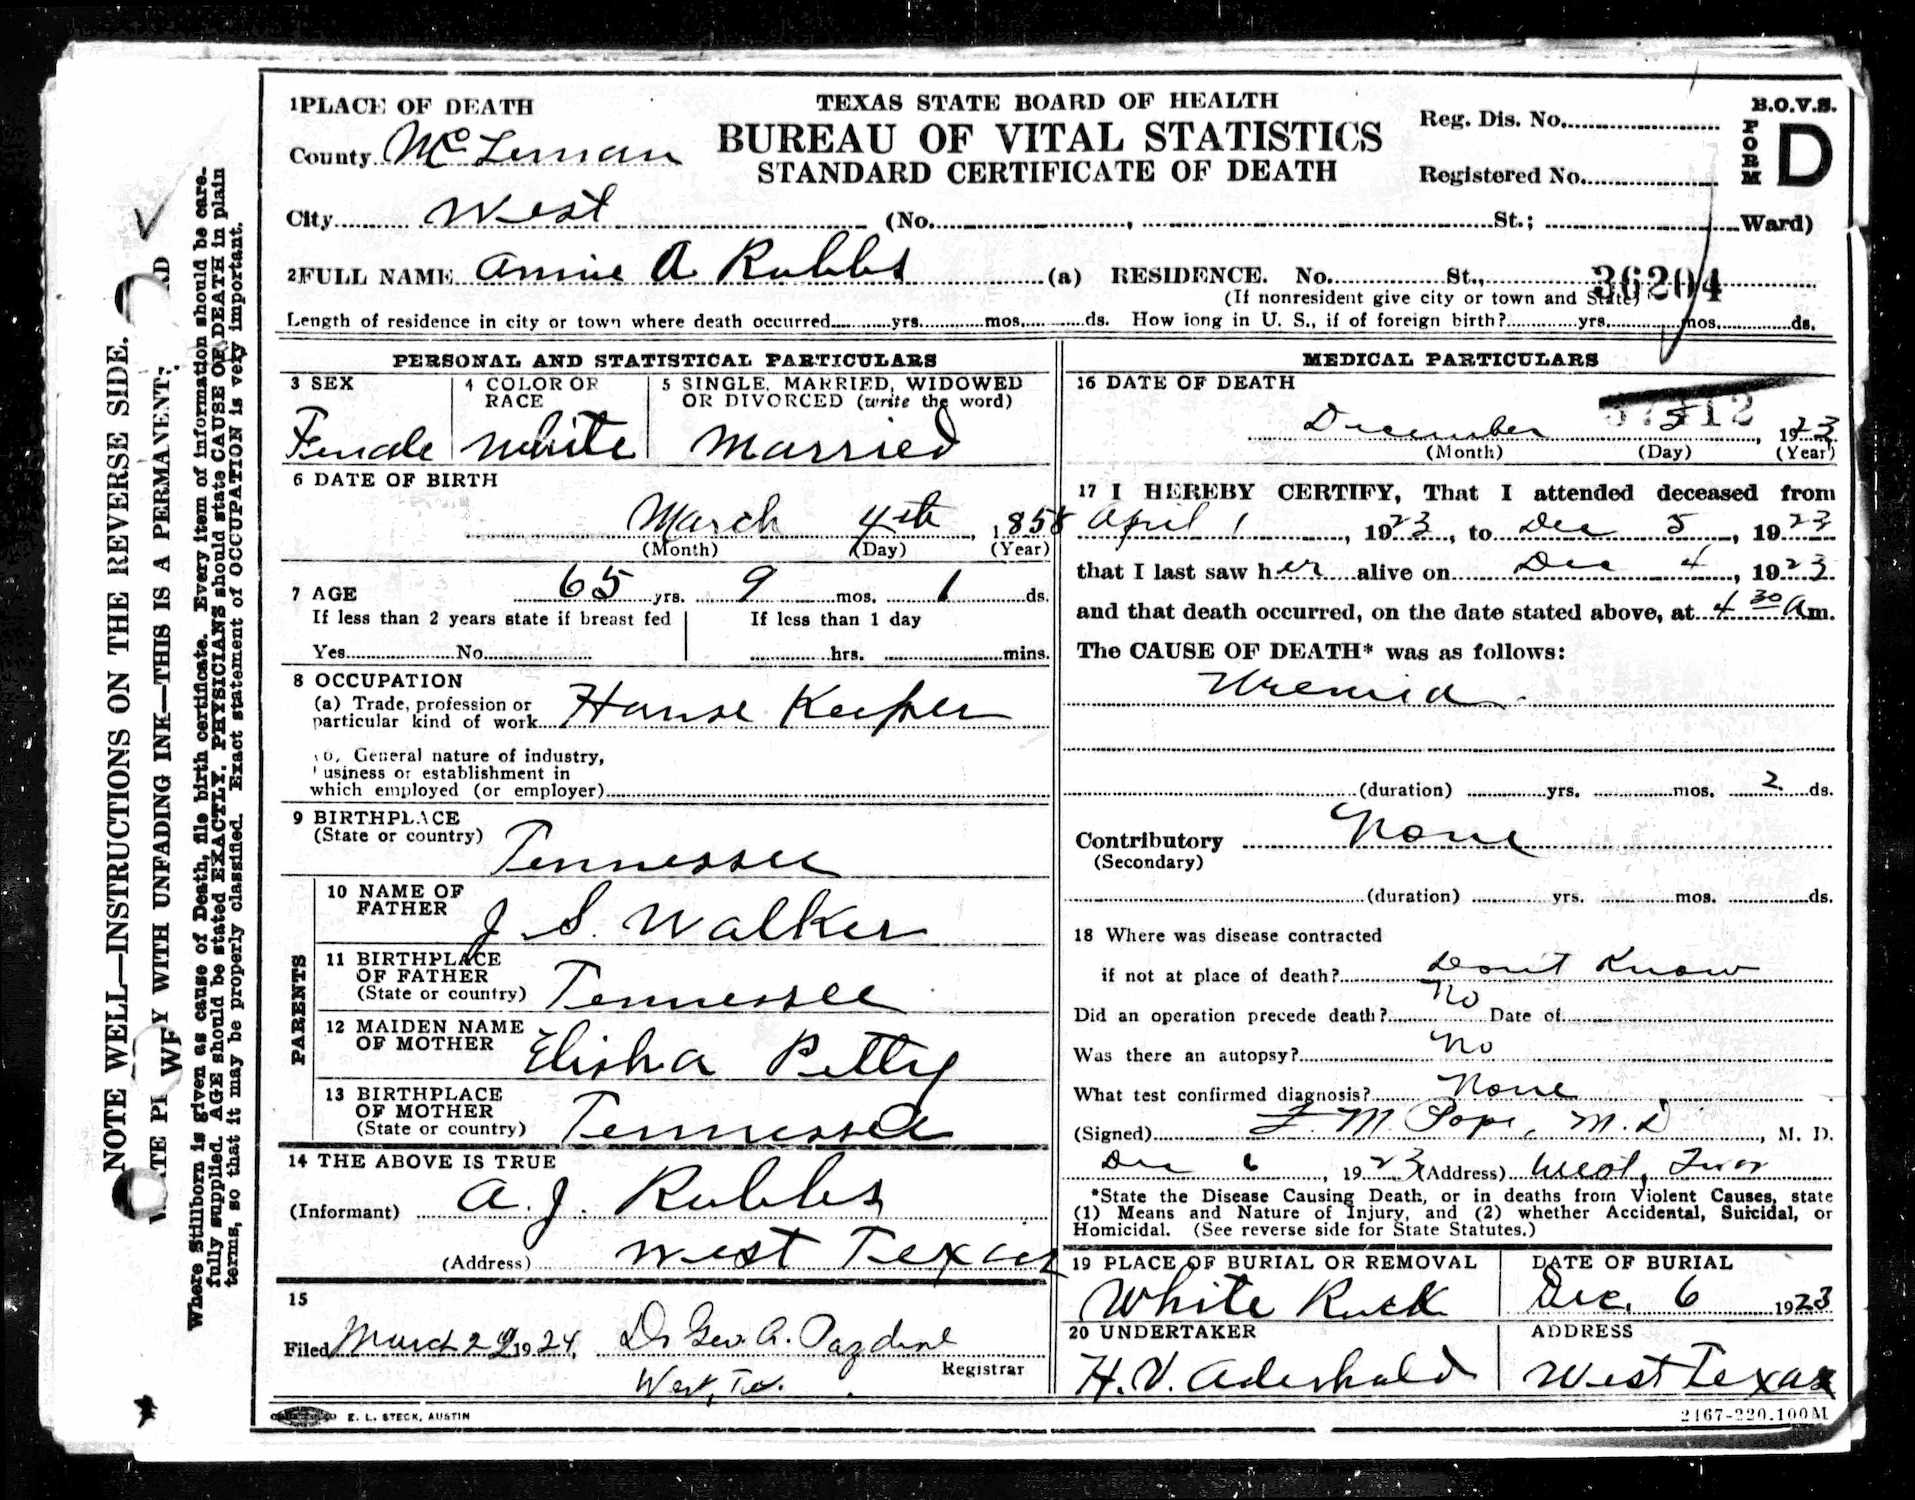 1 PLACE OF DEATH
County McLennan
City West (No. , St.; Ward)
TEXAS STATE BOARD OF HEALTH
BUREAU OF VITAL STATISTICS
STANDARD CERTIFICATE OF DEATH
Reg. Dis. No.
Registered No.
B.O.V.S.
FORM D
2 FULL NAME Annie A Rubbs (a) RESIDENCE. No. St.,
36204
(If nonresident give city or town and State)
Length of residence in city or town where death occurred yrs. mos. ds. How long in U. S., if of foreign birth? yrs. mos. ds.
PERSONAL AND STATISTICAL PARTICULARS
3 SEX
Female
4 COLOR OR RACE
White
5 SINGLE, MARRIED, WIDOWED
OR DIVORCED (write the word)
Married
6 DATE OF BIRTH
March 4th, 1858
(Month) (Day) (Year)
7 AGE 65 yrs. 9 mos. 1 ds.
If less than 2 years state if breast fed
Yes No
If less than 1 day
hrs. mins.
8 OCCUPATION
(a) Trade, profession or
particular kind of work House Keeper
General nature of industry,
usiness or establishment in
which employed (or employer)
9 BIRTHPLACE
(State or country) Tennessee
PARENTS
10 NAME OF
FATHER J S. Walker
11 BIRTHPLACE
OF FATHER
(State or country) Tennessee
12 MAIDEN NAME
OF MOTHER Elisha Petty
13 BIRTHPLACE
OF MOTHER
(State or country) Tennessee
14 THE ABOVE IS TRUE
(Informant) A. J. Rubbs
(Address) West Texas
15
Filed March 29 1924, Dr Geo A. Pazdral
Registrar
West, Tex.
E. L. STECK, AUSTIN
MEDICAL PARTICULARS
16 DATE OF DEATH
December 5, 1923
(Month) (Day) (Year)
17 I HEREBY CERTIFY, That I attended deceased from
April 1, 1923, to Dec 5, 1923
that I last saw her alive on Dec 4, 1923
and that death occurred, on the date stated above, at 4 30 Am.
The CAUSE OF DEATH* was as follows:
Uremia
(duration) yrs. mos. 2 ds.
Contributory None
(Secondary)
(duration) yrs. mos. ds.
18 Where was disease contracted
if not at place of death? Don't Know
Did an operation precede death? No Date of
Was there an autopsy? No
What test confirmed diagnosis? None
(Signed) F. M. Pope, M.D, M. D.
Dec 6, 1923 (Address) West, Texas
*State the Disease Causing Death, or in deaths from Violent Causes, state
(1) Means and Nature of Injury, and (2) whether Accidental, Suicidal, or
Homicidal. (See reverse side for State Statutes.)
19 PLACE OF BURIAL OR REMOVAL
White Rock
DATE OF BURIAL
Dec. 6 1923
20 UNDERTAKER
H. V. Aderhold
ADDRESS
West Texas
2467-220.100M
NOTE WELL—INSTRUCTIONS ON THE REVERSE SIDE.
WITH UNFADING INK—THIS IS A PERMANENT
Where Stillborn is given as cause of Death, file birth certificate. Every item of information should be care-
fully supplied. AGE should be stated EXACTLY. PHYSICIANS should state CAUSE OF DEATH in plain
terms, so that it may be properly classified. Exact statement of OCCUPATION is very important.